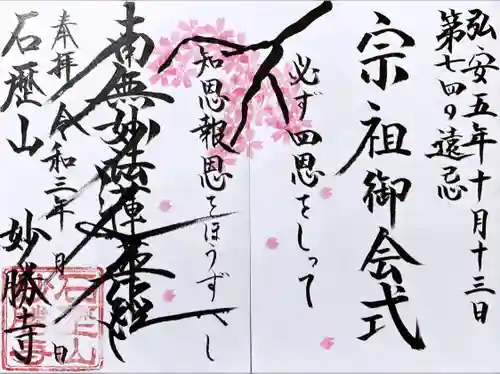 弘安五年十月十三日
第七四〇遠忌
宗祖御会式
必ず四恩をしって
知恩報恩をほうずべし
南無妙法蓮華経
奉拝 令和三年 月 日
石歴山
妙勝寺